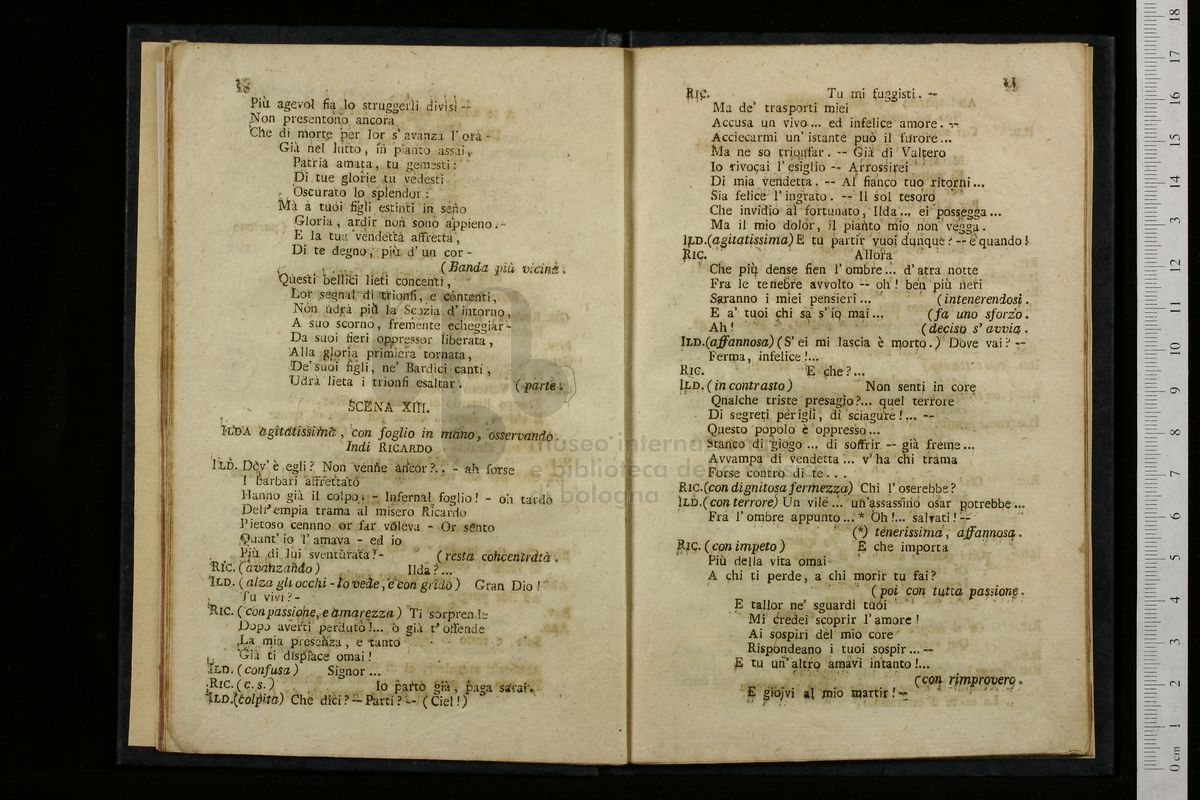 Più agevol fia lo struggerli divisi --
Non presentono ancora
Che di morte per lor s' avanza l' ora -
Già nel lutto, in pianto assai,
Patria amata, tu gemesti:
Di tue glorie tu vedesti
Oscurato lo splendor:
Ma a tuoi figli estinti in seno
Gloria, ardir non sono appieno. -
E la tua vendetta affretta,
Di te degno, più d' un cor -
(Banda più vicina.
Questi bellici lieti concenti,
Lor segnal di trionfi, e contenti,
Non udrà più la Scozia d' intorno,
A suo scorno, fremente echeggiar -
Da suoi fieri oppressor liberata,
Alla gloria primiera tornata,
De' suoi figli, ne' Bardici canti,
Udrà lieta i trionfi esaltar. (parte.
SCENA XIII.
ILDA agitatissima, con foglio in mano, osservando.
Indi RICARDO
ILD. Dov' è egli? Non venne ancor?.. - ah forse
I Barbari affrettato
Hanno già il colpo. - Infernal foglio! - oh tardo
Dell' empia trama al misero Ricardo
Pietoso cennno or far voleva - Or sento
Quant' io l' amava - ed io
Più di lui sventurata! - (resta concentrata.
RIC. (avanzando) Ilda?...
ILD. (alza gli occhi - lo vede, e con grido) Gran Dio!
Tu vivi? -
RIC. (con passione, e amarezza) Ti sorprende
Dopo averti perduto!... o già t' offende
La mia presenza, e tanto
Già ti dispiace omai!
ILD. (confusa) Signor...
RIC. (c. s.) Io parto già, paga sarai.
ILD. (colpita) Che dici? -- Parti? -- (Ciel!)
RIC. Tu mi fuggisti. --
Ma de' trasporti miei
Accusa un vivo... ed infelice amore. --
Acciecarmi un' istante può il furore...
Ma ne so trionfar. -- Già di Valtero
Io rivocai l' esiglio -- Arrossirei
Di mia vendetta. -- Al fianco tuo ritorni...
Sia felice l' ingrato. -- Il sol tesoro
Che invidio al fortunato, Ilda... ei possegga...
Ma il mio dolor, il pianto mio non vegga.
ILD. (agitatissima) E tu partir vuoi dunque? -- e quando!
RIC. Allora
Che più dense fien l' ombre... d' atra notte
Fra le tenebre avvolto -- oh! ben più neri
Saranno i miei pensieri... (intenerendosi.
E a' tuoi chi sa s' io mai... (fa uno sforzo.
Ah! (deciso s' avvia.
ILD. (affannosa) (S' ei mi lascia è morto.) Dove vai? --
Ferma, infelice!...
RIC. E che?...
ILD. (in contrasto) Non senti in core
Qnalche triste presagio?... quel terrore
Di segreti perigli, di sciagure!... --
Questo popolo è oppresso...
Stanco di giogo... di soffrir -- già freme...
Avvampa di vendetta... v' ha chi trama
Forse contro di te...
RIC. (con dignitosa fermezza) Chi l' oserebbe?
ILD. (con terrore) Un vile... un'assassino osar potrebbe...
Fra l' ombre appunto... * Oh!... salvati! --
(*) tenerissima, affannosa.
RIC. (con impeto) E che importa
Più della vita omai
A chi ti perde, a chi morir tu fai?
(poi con tutta passione.
E tallor ne' sguardi tuoi
Mi credei scoprir l' amore!
Ai sospiri del mio core
Rispondeano i tuoi sospir... --
E tu un' altro amavi intanto!...
(con rimprovero.
E gioivi al mio martir! --
museo interna
e biblioteca de
bologna